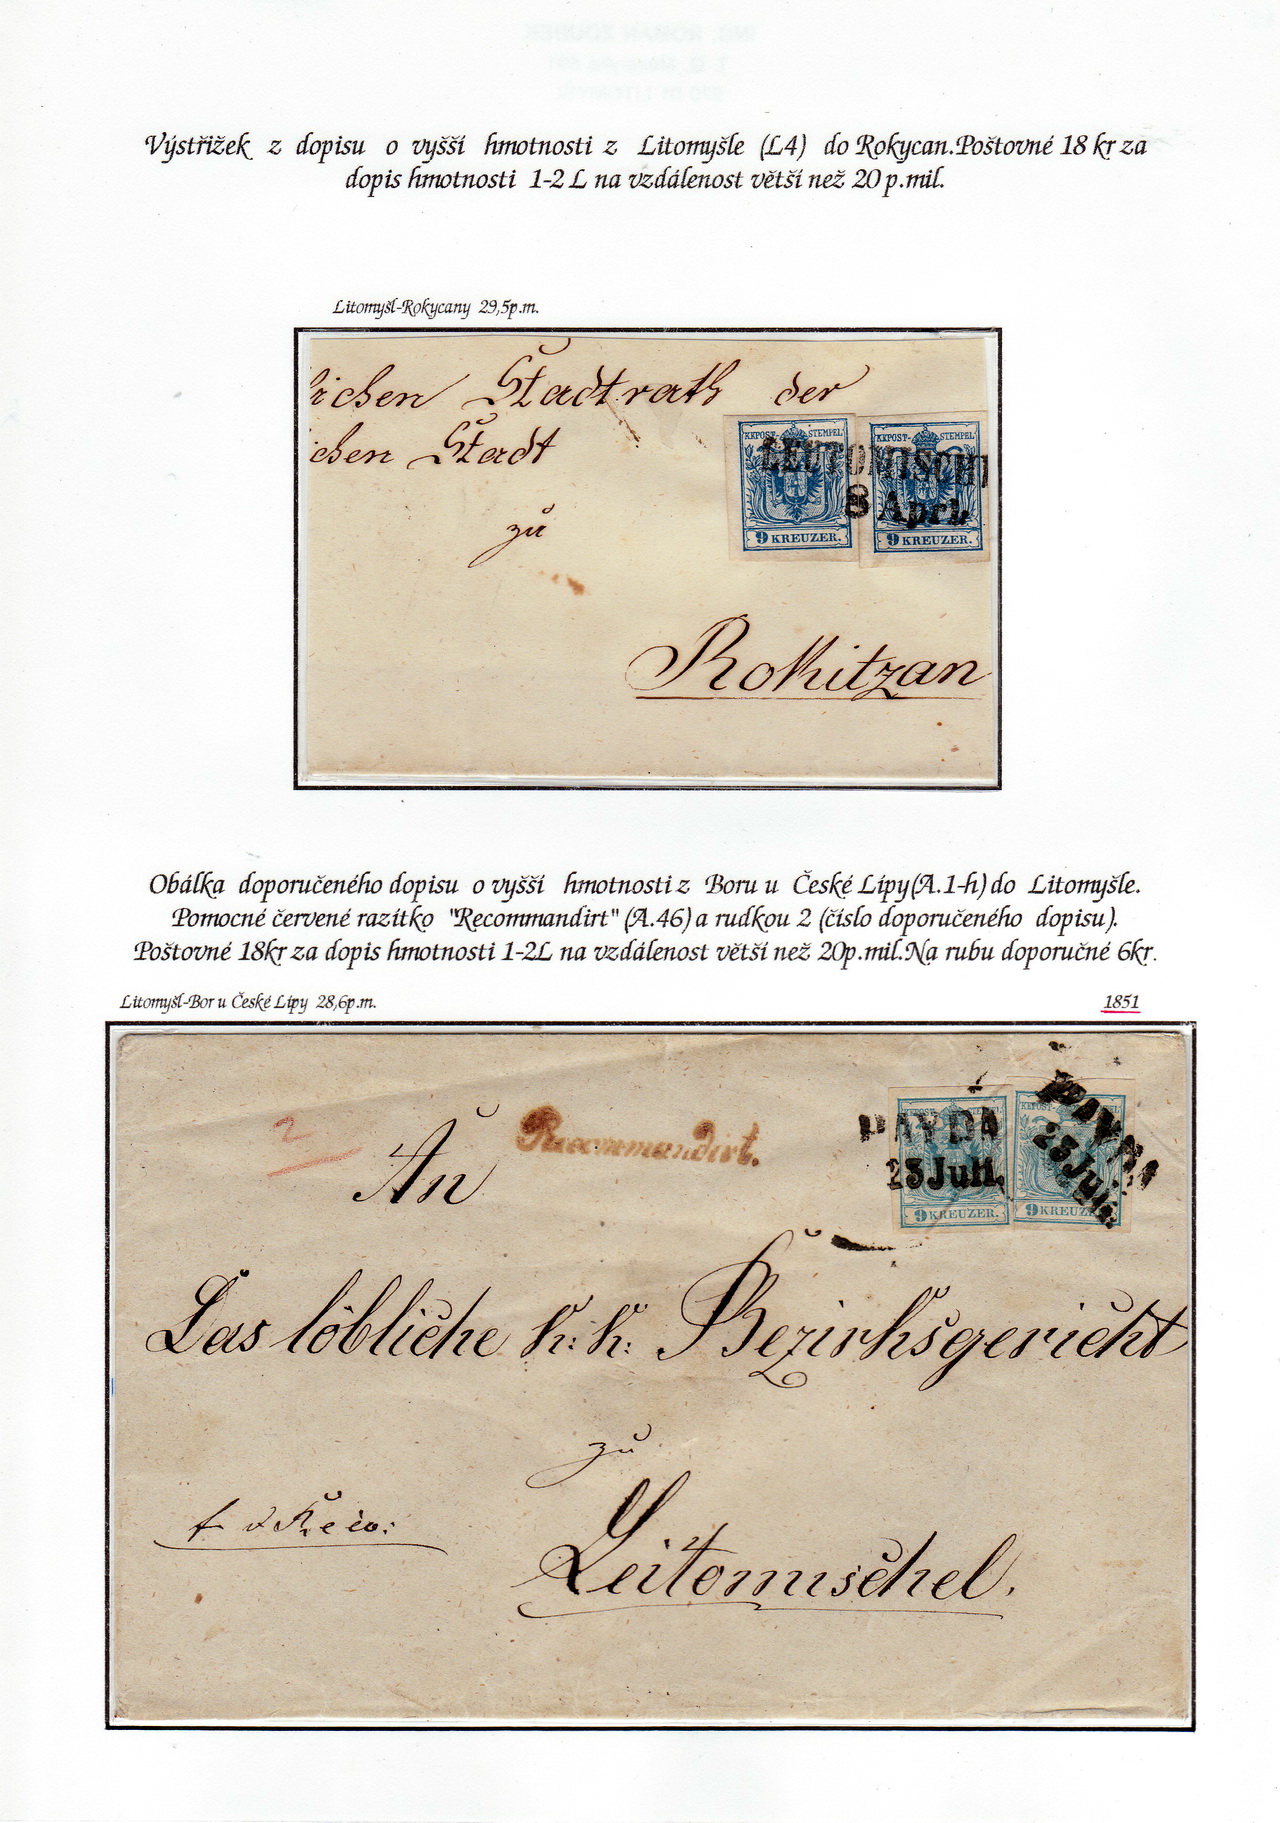 Výstřižek z dopisu o vyšší hmotnosti z Litomyšle (L4) do Rokycan. Poštovné 18 kr za
dopis hmotnosti 1-2 L na vzdálenost větší než 20 p.mil.
Litomyšl-Rokycany 29,5p.m.
lichen Stadtrath der
chen Stadt
KKPOST-STEMPEL
KKPOST-STEMPEL
LEUTOMISCHL
8 Apri.
9 KREUZER.
9 KREUZER.
zu
Rokitzan
Obálka doporučeného dopisu o vyšší hmotnosti z Boru u České Lípy (A.1-h) do Litomyšle.
Pomocné červené razítko "Recommandirt" (A.46) a rudkou 2 (číslo doporučeného dopisu).
Poštovné 18kr za dopis hmotnosti 1-2L na vzdálenost větší než 20p.mil. Na rubu doporučné 6kr.
Litomyšl-Bor u České Lípy 28,6p.m.
1851
2
Recommandirt.
KKPOST-STEMPEL
KKPOST-STEMPEL
HAYDA
23 Juli.
HAYDA
23 Juli.
9 KREUZER.
9 KREUZER.
An
Das löbliche k: k: Bezirksgericht
zu
Leitomischel.